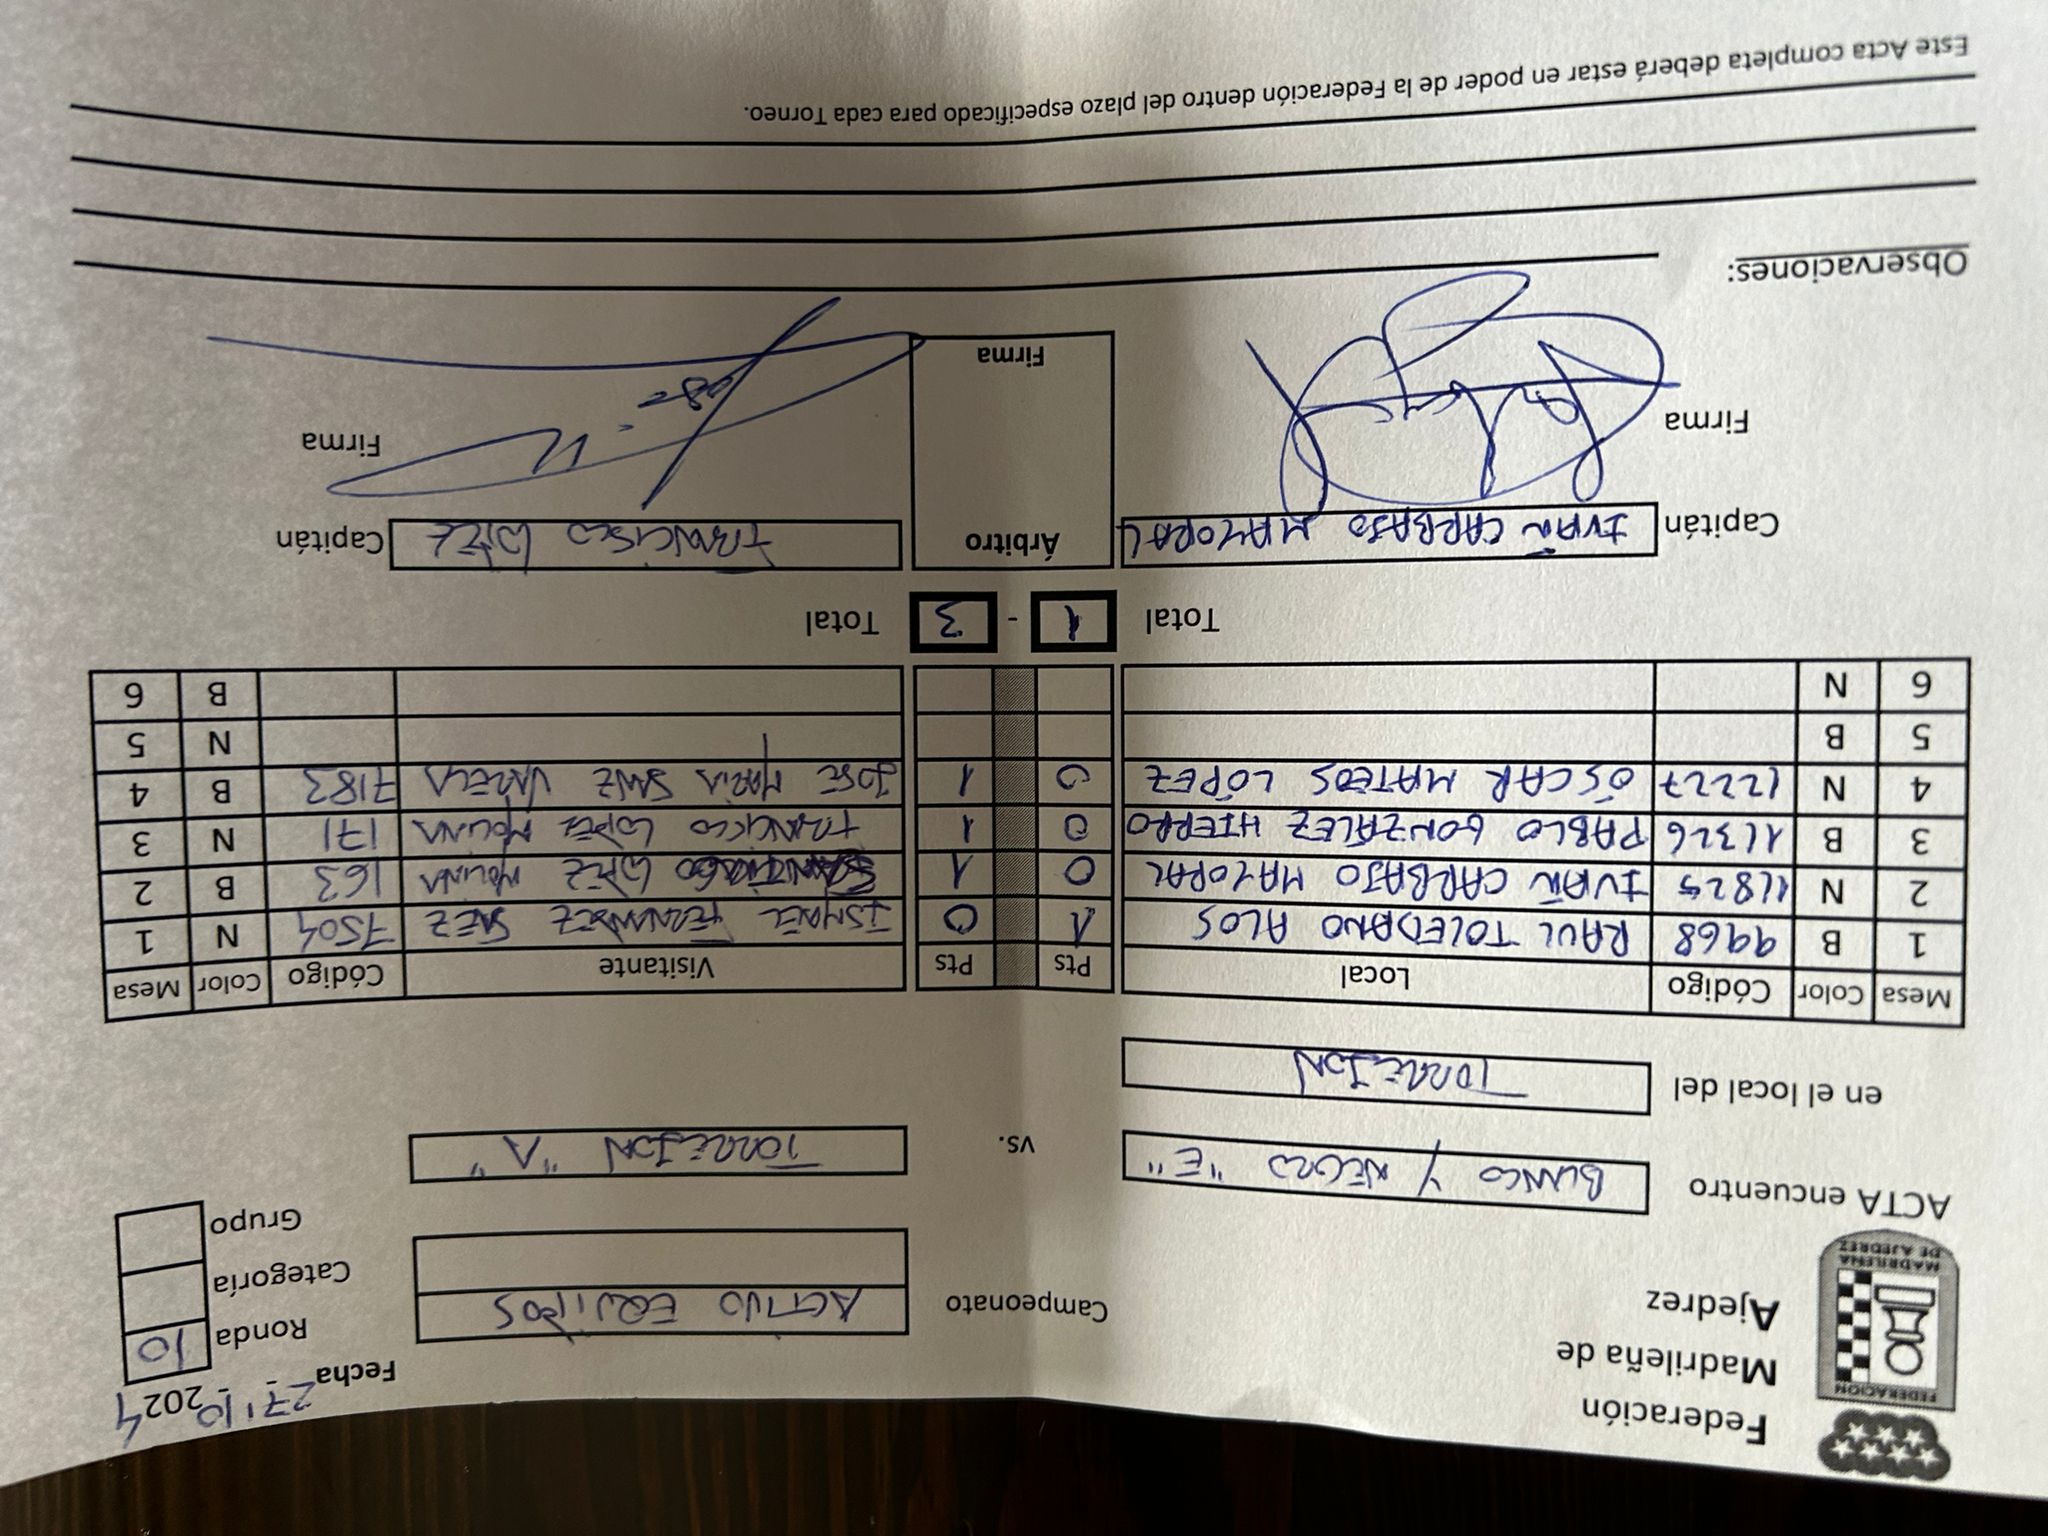 FEDERACION
MADRILEÑA
DE AJEDREZ
Federación
Madrileña de
Ajedrez
Fecha 27-10-2024
Campeonato ACTIVO EQUIPOS
Ronda 10
Categoría
Grupo
ACTA encuentro BLANCO Y NEGRO "E" vs. TORREJON "A"
en el local del TORREJON
Mesa Color Código Local Pts Pts Visitante Código Color Mesa
1 B 9968 RAUL TOLEDANO ALOS 1 0 ISMAEL FERNANDEZ SAEZ 7504 N 1
2 N 11825 IVÁN CARBAJO MAYORAL 0 1 SANTIAGO LÓPEZ MOLINA 163 B 2
3 B 11326 PABLO GONZÁLEZ HIERRO 0 1 FRANCISCO LOPEZ MOLINA 171 N 3
4 N 12227 ÓSCAR MATEOS LÓPEZ 0 1 JOSE MARIA SANZ VARELA 7183 B 4
5 B N 5
6 N B 6
Total 1 - 3 Total
Capitán IVÁN CARBAJO MAYORAL Árbitro FRANCISCO LÓPEZ Capitán
Firma Firma Firma
Observaciones:
Este Acta completa deberá estar en poder de la Federación dentro del plazo especificado para cada Torneo.